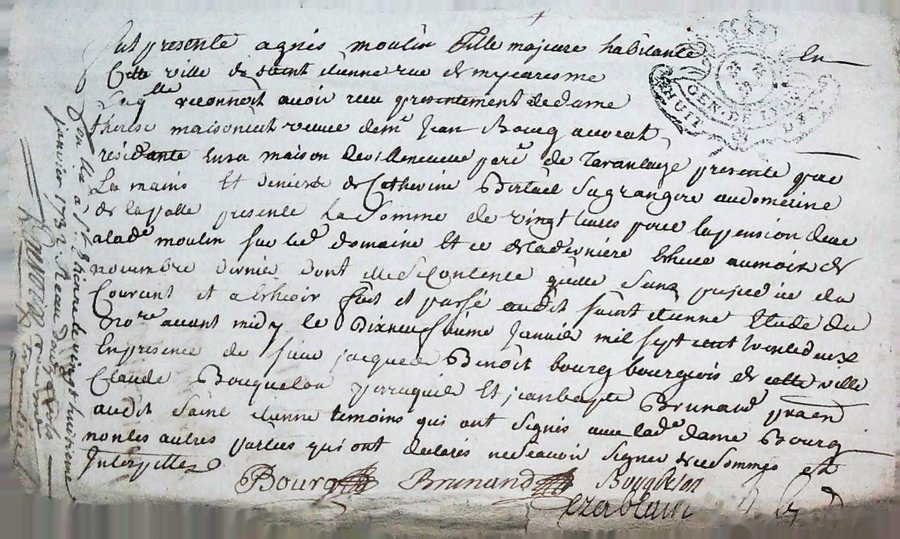 fut presente agnés moulin fille majeure habitante en
Cette ville de Saint Etienne rue de mycaresme
Laqlle reconnoit avoir reçu presentement de dame
therese maisoneuve veuve de mr Jean Bourg avocat
residante en sa maison de villeneuve parse de Tarantaize presente par
La mains Et deniers de Catherine sa grangere au domeine
de la presente La somme de vingt livres pour la pension deue
a lade moulin sur led domaine Et ce de la derniere Echue au mois de
novembre dernier dont elle se contente quitte sans prejudice du
Courant et a Echeoir fait et passé audit saint etienne Etude du
nore avant midy le Dixneufvieme Janvier mil sept cent trente deux
En presence de sieur jacque Benoit bourg bourgeois de cette ville
Claude perruquier Et jean bapte Brunand praen
audit saint Etienne temoins qui ont signés avec lade dame Bourg
non les autres parties qui ont declarés ne scavoir signer de ce sommés et
Interpellés
Bourg Brunand
GEN. DE LYON
HUIT DEN.
Con lle à St Etienne le vingt huitieme
janvier 1732. Reçu douze sols